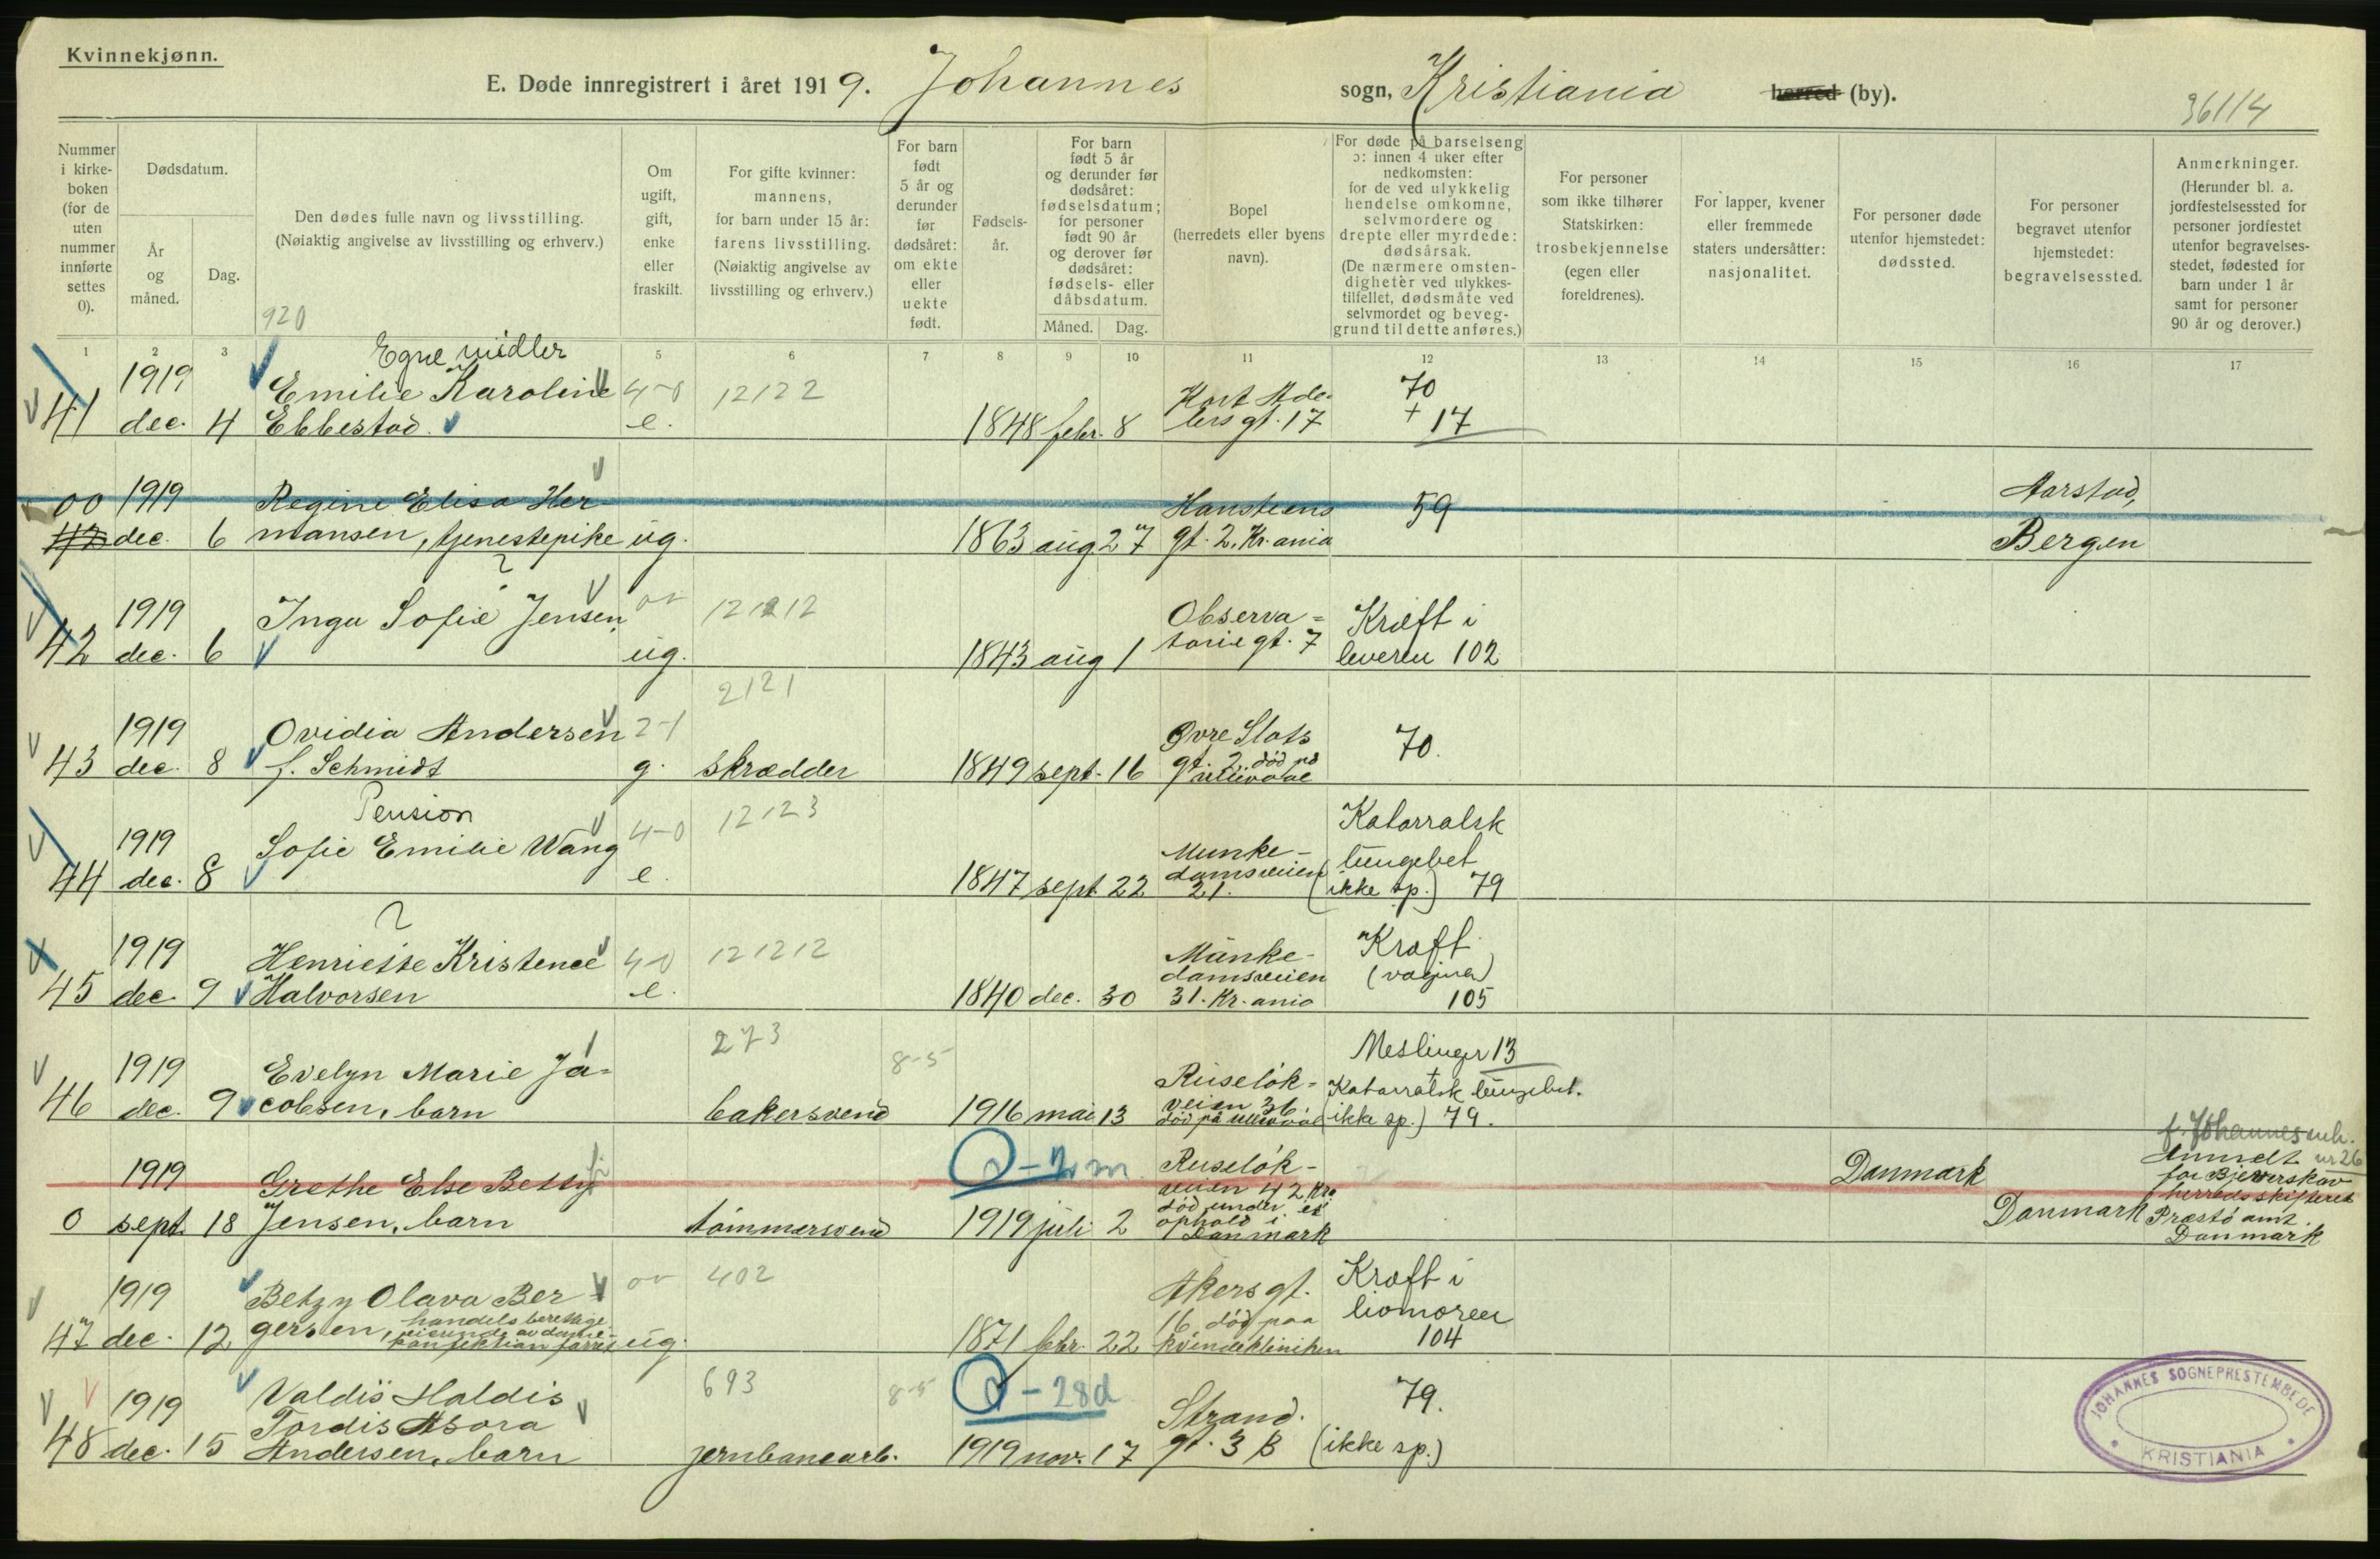 Kvinnekjønn.
E. Døde innregistrert i året 1919. Johannes sogn, Kristiania herred (by).
36114
Nummer i kirke-boken (for de uten nummer innførte settes 0).
Dødsdatum.
År og måned.
Dag.
Den dødes fulle navn og livsstilling.
(Nøiaktig angivelse av livsstilling og erhverv.)
920
Om ugift, gift, enke eller fraskilt.
For gifte kvinner: mannens, for barn under 15 år: farens livsstilling.
(Nøiaktig angivelse av livsstilling og erhverv.)
For barn født 5 år og derunder før dødsåret: om ekte eller uekte født.
Fødsels-år.
For barn født 5 år og derunder før dødsåret: fødselsdatum; for personer født 90 år og derover før dødsåret: fødsels- eller dåbsdatum.
Måned. Dag.
Bopel
(herredets eller byens navn).
For døde på barselseng ɔ: innen 4 uker efter nedkomsten: for de ved ulykkelig hendelse omkomne, selvmordere og drepte eller myrdede: dødsårsak.
(De nærmere omsten-digheter ved ulykkes-tilfellet, dødsmåte ved selvmordet og beveg-grund til dette anføres.)
For personer som ikke tilhører Statskirken: trosbekjennelse (egen eller foreldrenes).
For lapper, kvener eller fremmede staters undersåtter: nasjonalitet.
For personer døde utenfor hjemstedet: dødssted.
For personer begravet utenfor hjemstedet: begravelsessted.
Anmerkninger.
(Herunder bl. a. jordfestelsessted for personer jordfestet utenfor begravelses-stedet, fødested for barn under 1 år samt for personer 90 år og derover.)
1 2 3 5 6 7 8 9 10 11 12 13 14 15 16 17
Egne midler
1919 Emilie Karoline 4-0 12122 Kort Ade- 70
41 dec. 4 Ebbestad e. 1848 febr. 8 lers gt. 17 + 17
00 1919 Regine Elisa Her- Hansteens 59 Aarstad,
42 dec. 6 mansen, tjenestepike ug. 1863 aug 27 gt. 2. Kr.ania Bergen
?
1919 Inga Sofie Jensen 121212 Observa= Kræft i
42 dec. 6 ug. 1843 aug 1 torie gt. 7 leveren 102
2121
1919 Ovidia Andersen 2-1 Øvre Slots 70.
43 dec. 8 f. Schmidt g. skrædder 1849 sept. 16 gt. 2. død på
ullevaal
Pension
1919 Sofie Emilie Wang 4-0 12123 Munke- Katarralsk
damsveien lungebet
44 dec. 8 e. 1847 sept. 22 21. (ikke sp.) 79
?
1919 Henriette Kristence 4-0 121212 Munke- Kræft
damsveien (vagina)
45 dec. 9 Halvorsen e. 1840 dec. 30 31. Kr.ania 105
273
1919 Evelyn Marie Ja- 8-5 Ruseløk- Meslinger 13
+
veien 36. Katarralsk lungebet.
46 dec. 9 cobsen, barn bakersvend 1916 mai 13 død på ullevaal (ikke sp.) 79.
1919 Grethe Else Betty 2 m Ruseløk- Danmark
veien 42 Kra.
død under et
0 sept. 18 Jensen, barn tømmersvend 1919 juli 2 ophold i Danmark
Danmark
f. Johannes
Anmeldt nr 26
for Bjeverskov
herreds skifteret
Præstø amt.
Danmark
1919 Betzy Olava Ber 402 Akers gt. Kræft i
gersen, handelsberettige 16 død paa livmoren
47 dec. 12 ug. 1871 febr. 22 kvindeklinikken 104
1919 Valdis Haldis 693 8-5 28 d 79.
Tordis Asora Strand.
48 dec. 15 Andersen, barn jernbanearb. 1919 nov. 17 gt. 3 B (ikke sp.)
JOHANNES SOGNEPRESTEMBEDE
KRISTIANIA